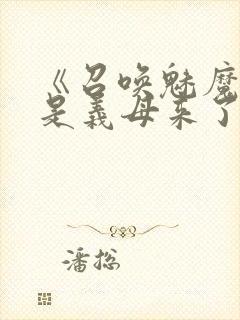 《召唤魅魔
是義母来了
潘掰